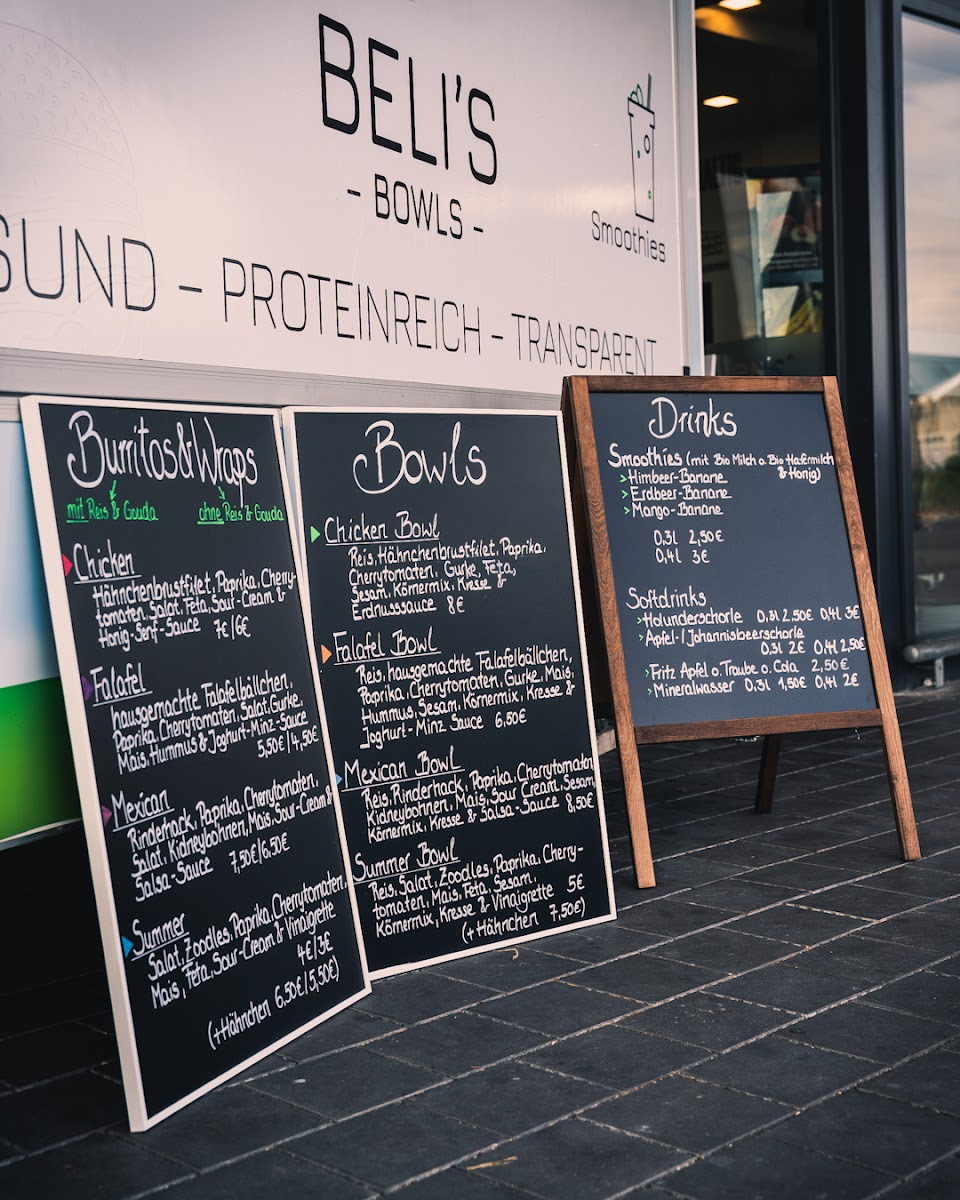 BELI'S
- BOWLS -
Smoothies
SUND - PROTEINREICH - TRANSPARENT
Burritos & Wraps
mit Reis & Gouda
ohne Reis & Gouda
Chicken
Hähnchenbrustfilet, Paprika, Cherry-
tomaten, Salat, Feta, Sour-Cream &
Honig-Senf-Sauce 7€/6€
Falafel
hausgemachte Falafelbällchen,
Paprika, Cherrytomaten, Salat, Gurke,
Mais, Hummus & Joghurt-Minz-Sauce
5,50€/4,50€
Mexican
Rinderhack, Paprika, Cherrytomaten,
Salat, Kidneybohnen, Mais, Sour-Cream &
Salsa-Sauce 7,50€/6,50€
Summer
Salat, Zoodles, Paprika, Cherrytomaten,
Mais, Feta, Sour-Cream & Vinaigrette
4€/3€
(+Hähnchen 6,50€/5,50€)
Bowls
Chicken Bowl
Reis, Hähnchenbrustfilet, Paprika,
Cherrytomaten, Gurke, Feta,
Sesam, Körnermix, Kresse &
Erdnusssauce 8€
Falafel Bowl
Reis, hausgemachte Falafelbällchen,
Paprika, Cherrytomaten, Gurke, Mais,
Hummus, Sesam, Körnermix, Kresse &
Joghurt-Minz Sauce 6,50€
Mexican Bowl
Reis, Rinderhack, Paprika, Cherrytomaten,
Kidneybohnen, Mais, Sour Cream, Sesam,
Körnermix, Kresse & Salsa-Sauce 8,50€
Summer Bowl
Reis, Salat, Zoodles, Paprika, Cherry-
tomaten, Mais, Feta, Sesam,
Körnermix, Kresse & Vinaigrette 5€
(+Hähnchen 7,50€)
Drinks
Smoothies (mit Bio Milch o. Bio Hafermilch
& Honig)
Himbeer-Banane
Erdbeer-Banane
Mango-Banane
0,3l 2,50€
0,4l 3€
Softdrinks
Holunderschorle 0,3l 2,50€ 0,4l 3€
Apfel-/Johannisbeerschorle
0,3l 2€ 0,4l 2,50€
Fritz Apfel o. Traube o. Cola 2,50€
Mineralwasser 0,3l 1,50€ 0,4l 2€